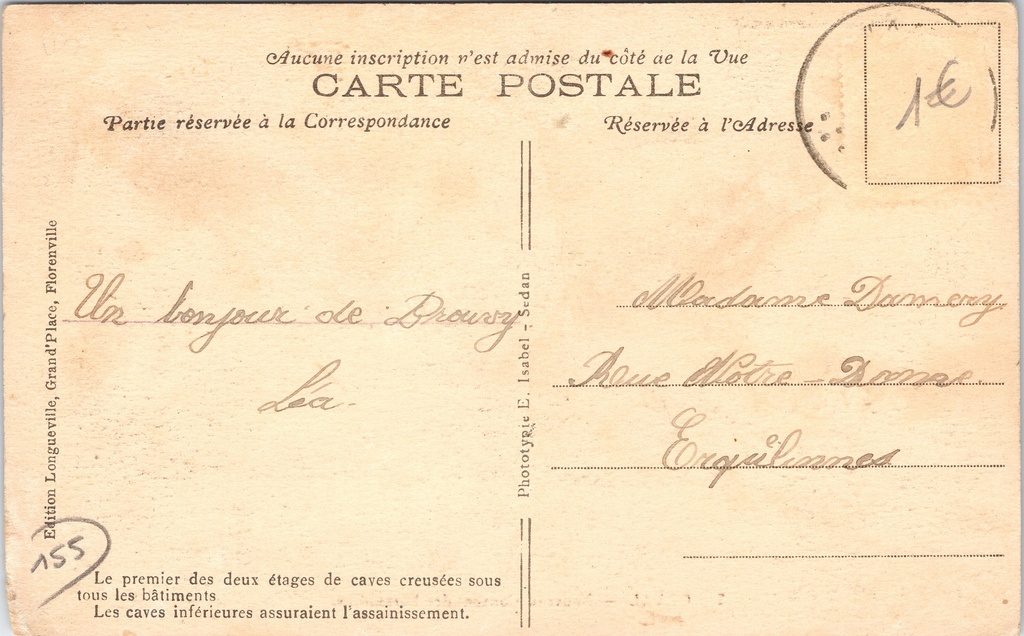 Aucune inscription n'est admise du côté de la Vue
CARTE POSTALE
Partie réservée à la Correspondance
Réservée à l'Adresse
1€
Edition Longueville, Grand'Place, Florenville
Un bonjour de Brouvy
Léa.
Phototypie E. Isabel - Sedan
Madame Damery
Rue Notre-Dame
Erquelinnes
155
Le premier des deux étages de caves creusées sous
tous les bâtiments
Les caves inférieures assuraient l'assainissement.